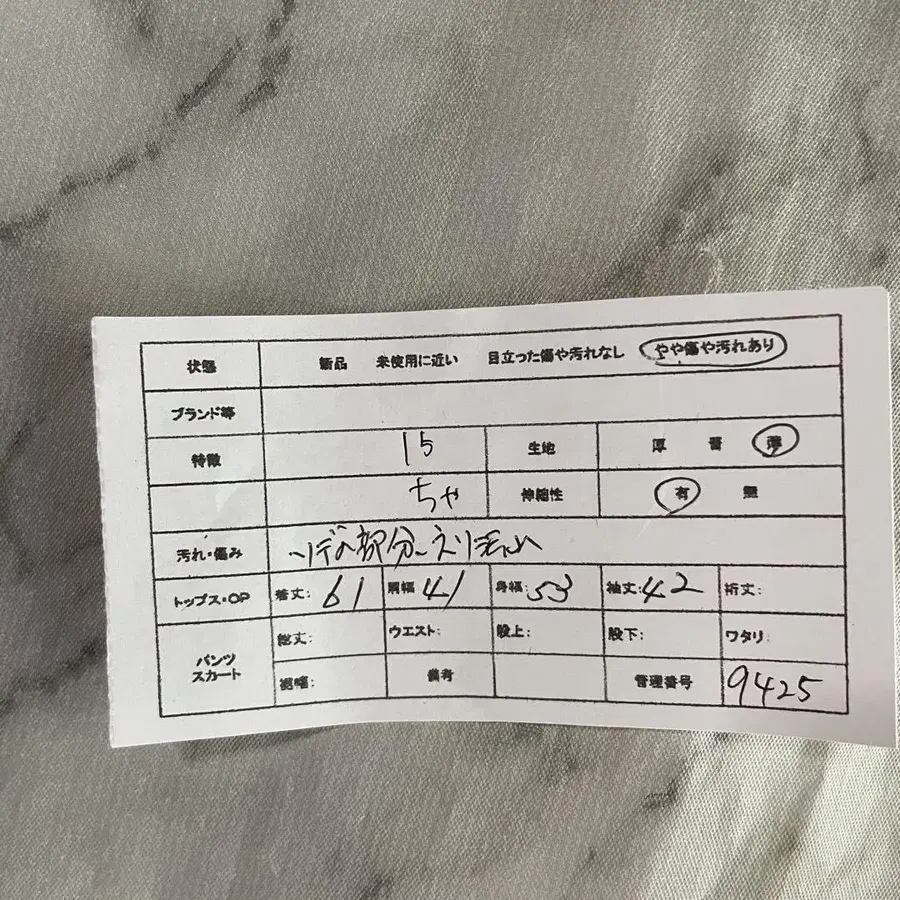 状態 新品 未使用に近い 目立った傷や汚れなし やや傷や汚れあり
ブランド等
特徴 15 生地 厚 普 薄
ちゃ 伸縮性 有 無
汚れ・傷み ソデの部分、エリ汚れ
トップス・OP 着丈: 61 肩幅: 41 身幅: 53 袖丈: 42 裄丈:
パンツ スカート 総丈: ウエスト: 股上: 股下: ワタリ:
裾幅: 備考 管理番号 9425